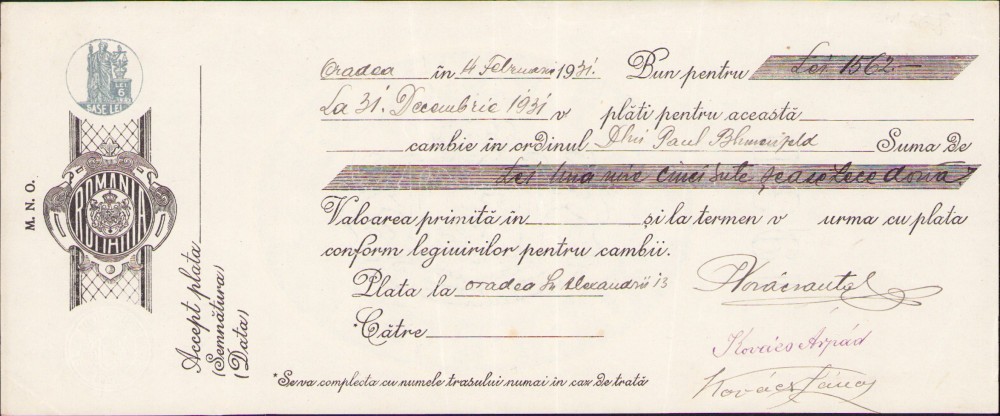 LEI
6
ȘASE LEI
M. N. O.
ROMANIA
Accept plata
(Semnătura)
(Data)
Oradea în 4 Februarie 1931. Bun pentru Lei 1562.—
La 31. Decembrie 1931 v plăti pentru această
cambie în ordinul Dlui Paul Blumenfeld Suma de
Lei una mie cinci sute șease zece doua
Valoarea primită în și la termen v urma cu plata
conform legiuirilor pentru cambii.
Plata la Oradea Alexandrii 13
*Către
Kovács Arpád
Kovács János
*Se va complecta cu numele trasului numai în caz de trată